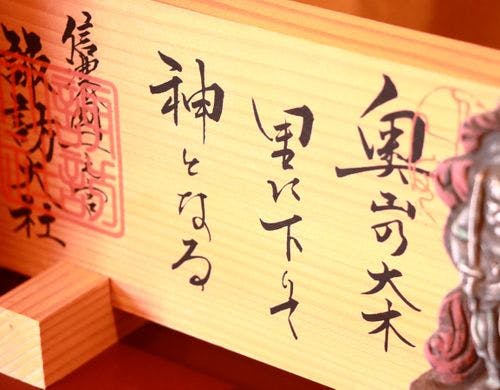 奥山の大木
里に下りて
神となる
信州一之宮
諏訪大社